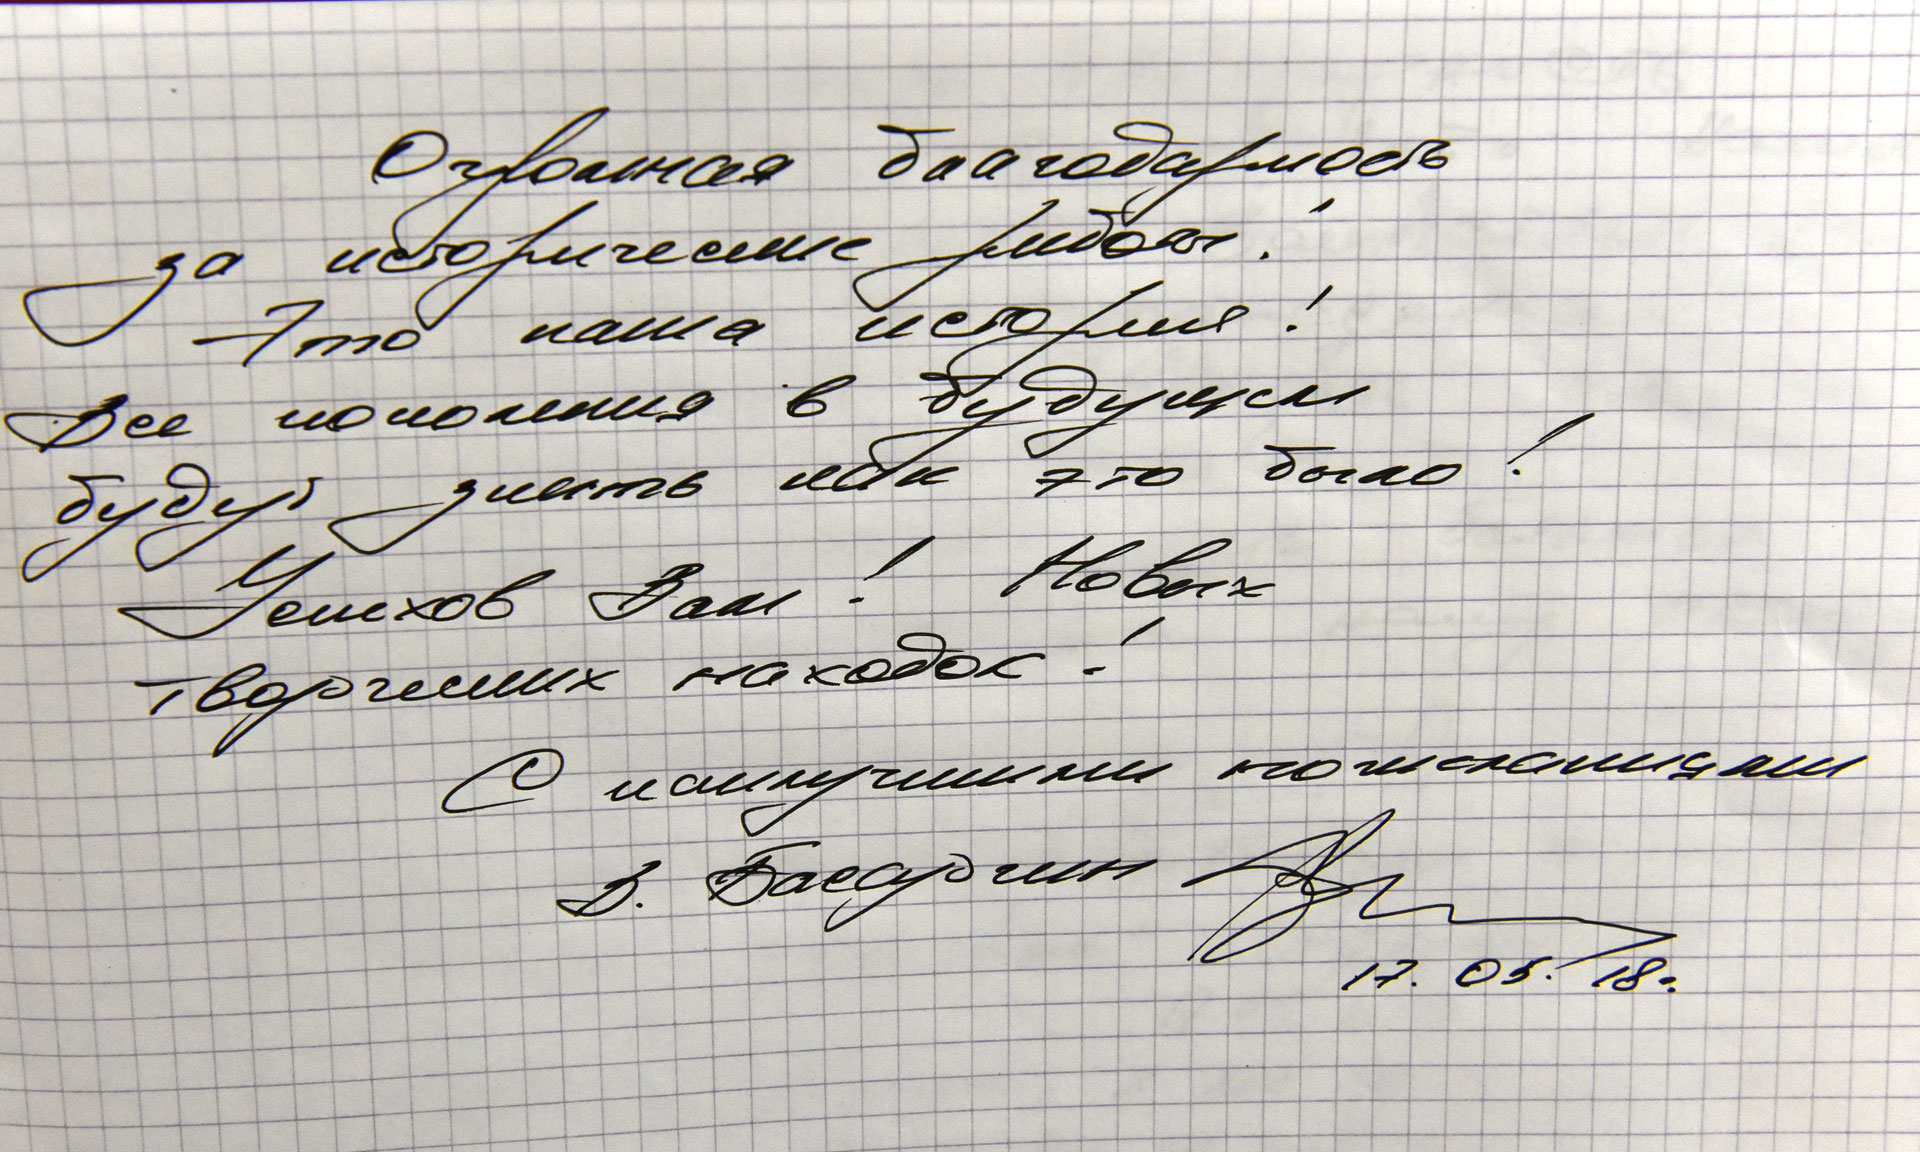 Огромная благодарность
за исторические работы!
Это наша история!
Все поколения в будущем
будут знать как это было!
Успехов Вам! Новых
творческих находок!
С наилучшими пожеланиями
В. Басаргин
17.05.18г.